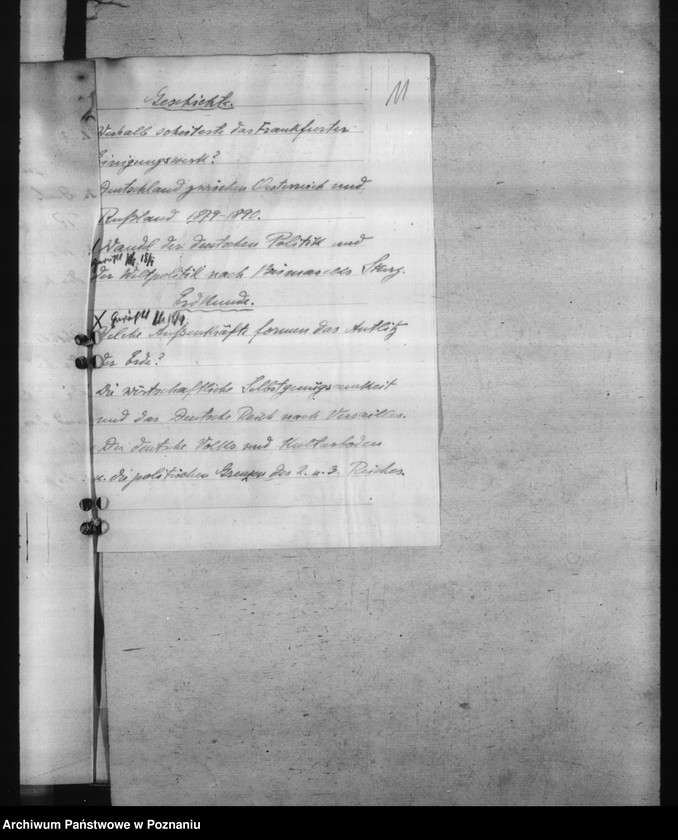 11
Geschichte.
Weshalb scheiterte das Frankfurter
Einigungswerk?
Deutschland zwischen Österreich und
Rußland 1879-1890.
Wandl der deutschen Politik und
der Weltpolitik nach Bismarcks Sturz.
Erdkunde.
X gewählt
Welche Außenkräfte formen das Antlitz
der Erde?
Die wirtschaftliche Selbstgenügsamkeit
und das Deutsche Reich nach Versailles.
Der deutsche Volks und Kulturboden
u. die politischen Grenzen des 2. u. 3. Reiches.
Archiwum Państwowe w Poznaniu